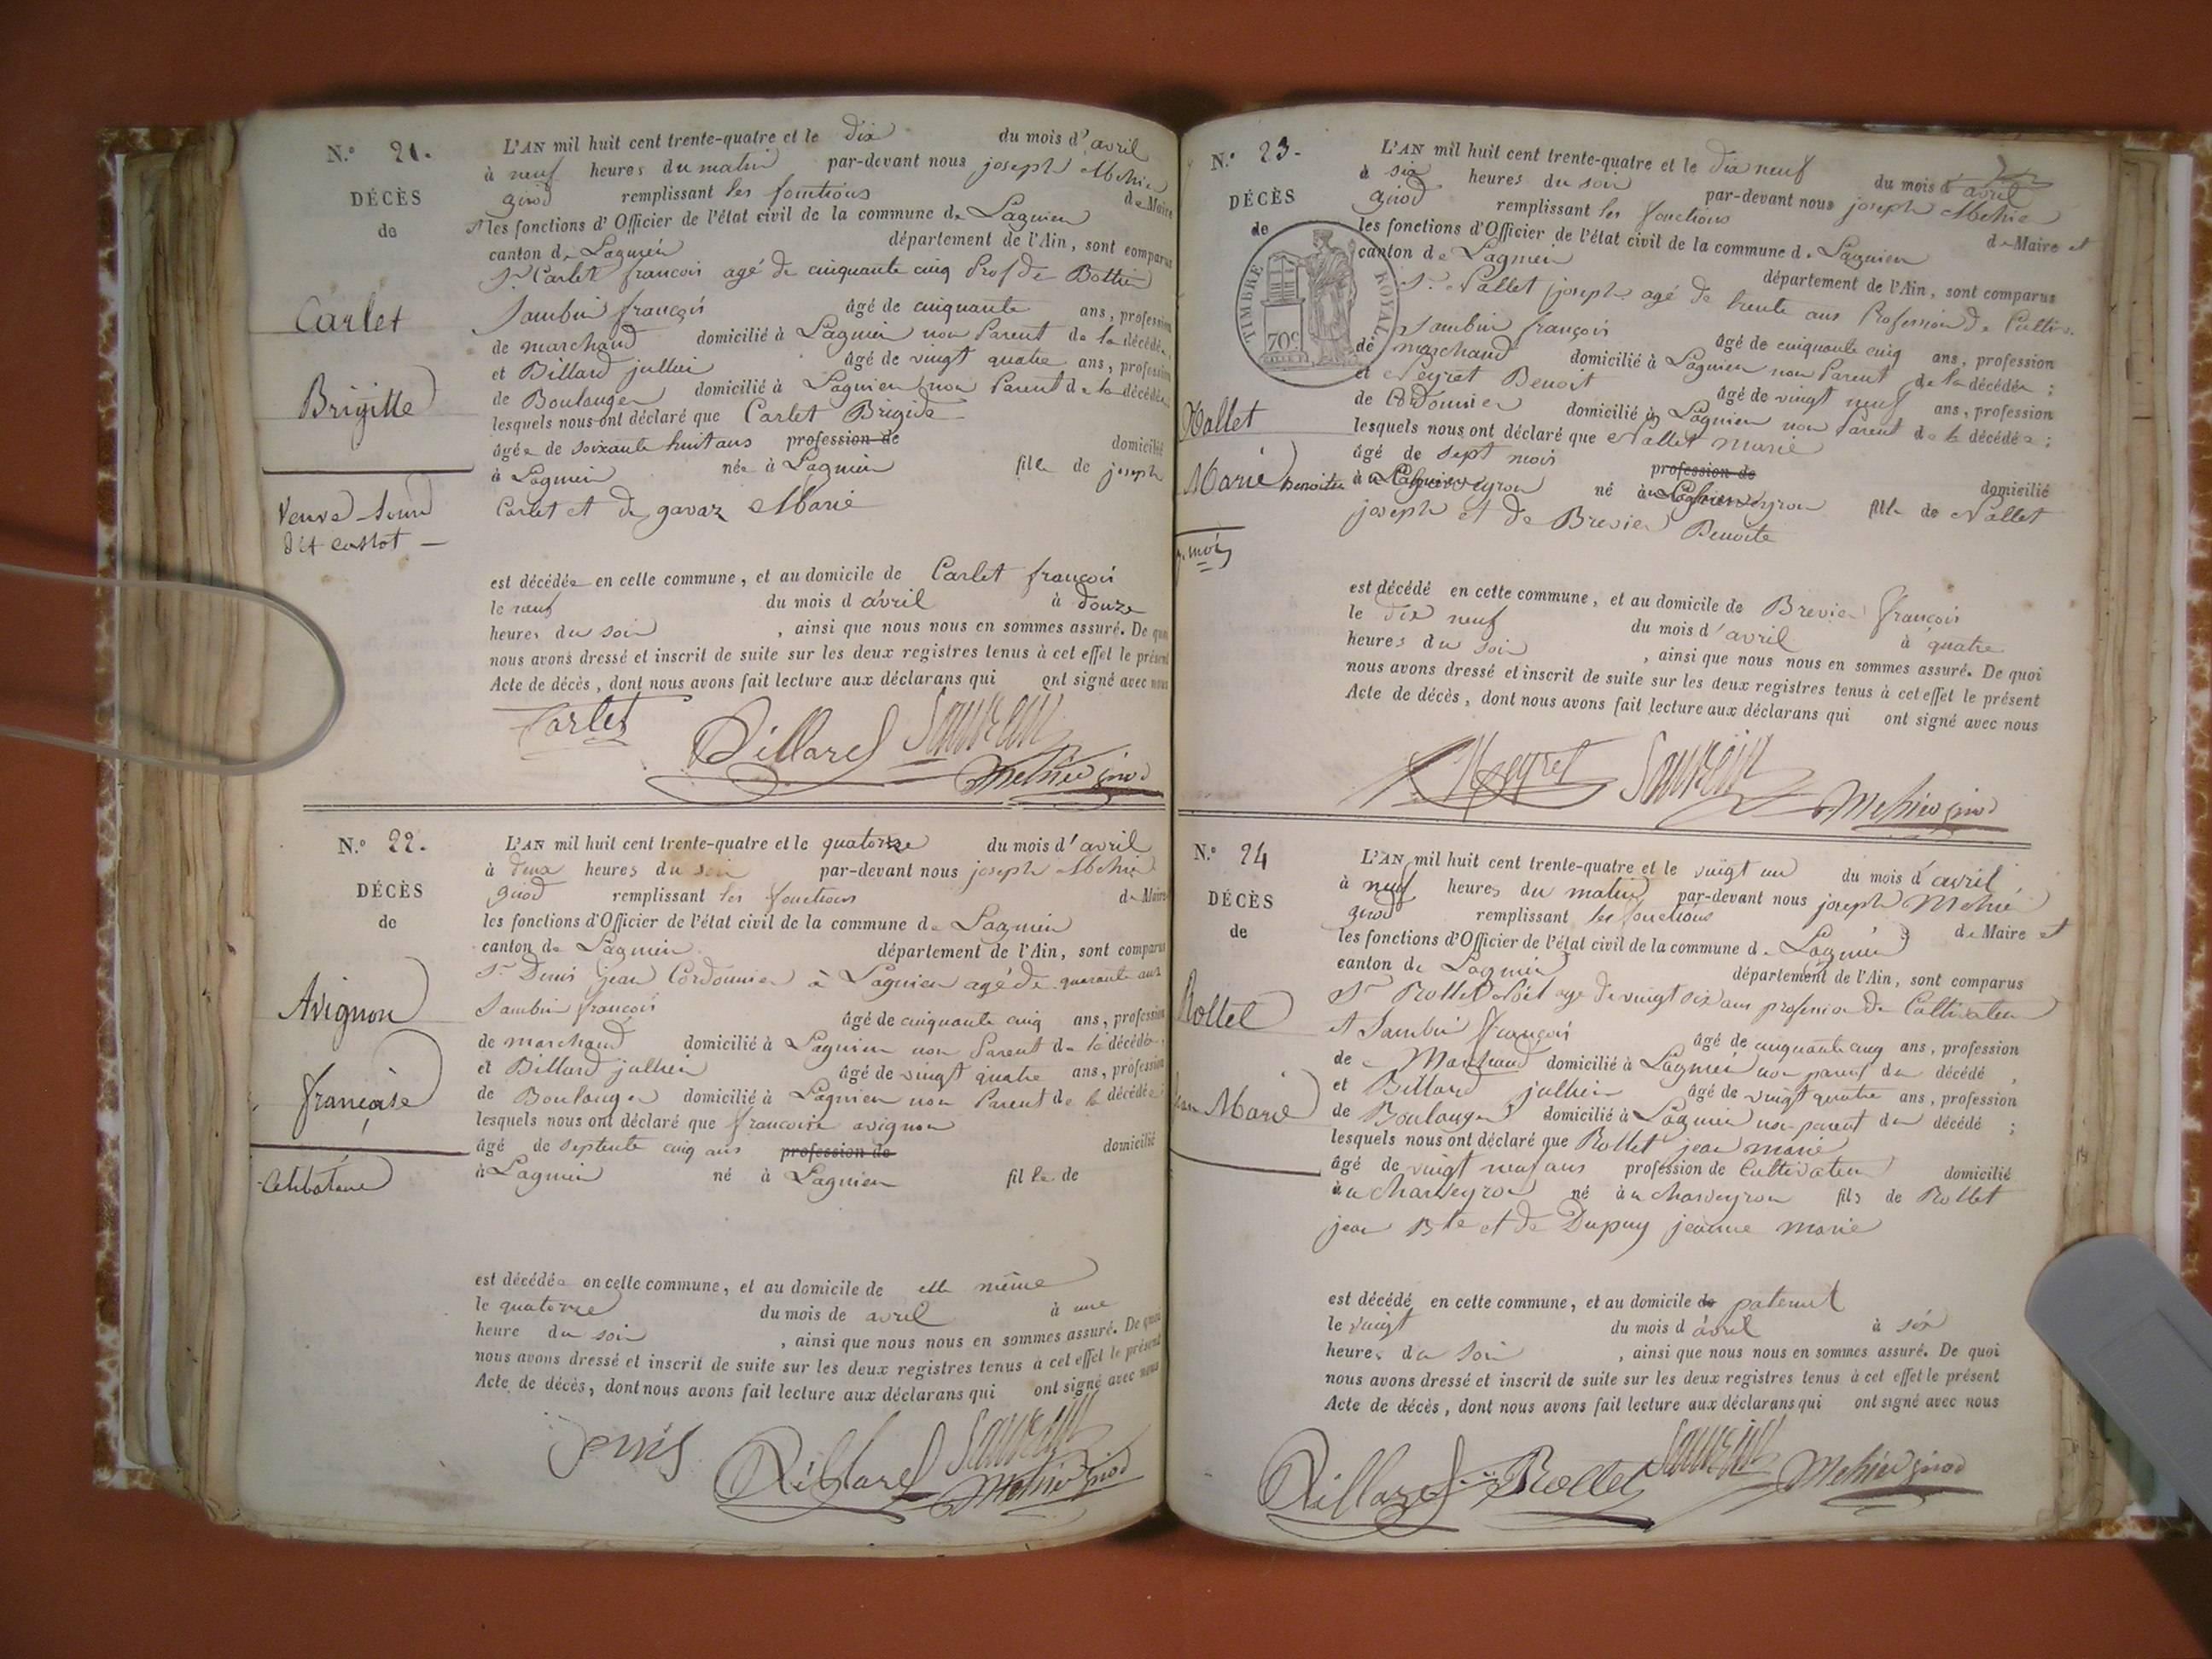 N.° 21.
DÉCÈS
de
Carlet
Brigitte
Veuve
L'AN mil huit cent trente-quatre et le dix du mois d'avril
à neuf heures du matin par-devant nous joseph Mehier
girod remplissant les fonctions de Maire
et les fonctions d'Officier de l'état civil de la commune de Lagnieu
canton de Lagnieu département de l'Ain, sont comparus
Sr Carlet francois agé de cinquante cinq
francois âgé de cinquante ans, profession
de marchand domicilié à Lagnieu non Parent de la décédée
et Billard jullien âgé de vingt quatre ans, profession
de Boulanger domicilié à Lagnieu non Parent de la décédée
lesquels nous ont déclaré que Carlet Brigide
âgée de soixante huit ans profession de domicilié
à Lagnieu née à Lagnieu fille de joseph
Carlet et de gavaz Marie
est décédée en cette commune, et au domicile de Carlet francois
le neuf du mois d avril à douze
heures du soir , ainsi que nous nous en sommes assuré. De quoi
nous avons dressé et inscrit de suite sur les deux registres tenus à cet effet le présent
Acte de décès, dont nous avons fait lecture aux déclarans qui ont signé avec nous
Carlet Billard Mehier girod
N.° 22.
DÉCÈS
de
Avignon
françoise
L'AN mil huit cent trente-quatre et le quatorze du mois d'avril
à deux heures du soir par-devant nous joseph Mehier
girod remplissant les fonctions de Maire
les fonctions d'Officier de l'état civil de la commune de Lagnieu
canton de Lagnieu département de l'Ain, sont comparus
Sr Denis jean Cordonnier à Lagnieu agé de quarante ans
francois âgé de cinquante cinq ans, profession
de marchand domicilié à Lagnieu non Parent de la décédée
et Billard jullien âgé de vingt quatre ans, profession
de Boulanger domicilié à Lagnieu non Parent de la décédée
lesquels nous ont déclaré que francoise avignon
âgé de septente cinq ans profession de domicilié
à Lagnieu né à Lagnieu fille de
est décédée en cette commune, et au domicile de elle même
le quatorze du mois de avril à une
heure du soir , ainsi que nous nous en sommes assuré. De quoi
nous avons dressé et inscrit de suite sur les deux registres tenus à cet effet le présent
Acte de décès, dont nous avons fait lecture aux déclarans qui ont signé avec nous
Denis Billard Mehier girod
N.° 23.
DÉCÈS
de
TIMBRE ROYAL
70c
Nallet
Marie benoite
7 mois
L'AN mil huit cent trente-quatre et le dix neuf du mois d'avril
à six heures du soir par-devant nous joseph Mehier
girod remplissant les fonctions de Maire et
les fonctions d'Officier de l'état civil de la commune de Lagnieu
canton de Lagnieu département de l'Ain, sont comparus
Sr Nallet joseph agé de trente ans Profession de Cultiv.
françois âgé de cinquante cinq ans, profession
de marchand domicilié à Lagnieu non Parent de la décédée ;
et Neyret Benoit âgé de vingt neuf ans, profession
de Cordonnier domicilié à Lagnieu non Parent de la décédée ;
lesquels nous ont déclaré que Nallet Marie
âgé de sept mois profession de domicilié
à né à fille de Nallet
joseph et de Brevier Benoite
est décédé en cette commune, et au domicile de Brevier françois
le dix neuf du mois d'avril à quatre
heures du soir , ainsi que nous nous en sommes assuré. De quoi
nous avons dressé et inscrit de suite sur les deux registres tenus à cet effet le présent
Acte de décès, dont nous avons fait lecture aux déclarans qui ont signé avec nous
Neyret Mehier girod
N.° 24
DÉCÈS
de
Rollet
jean Marie
L'AN mil huit cent trente-quatre et le vingt un du mois d'avril
à neuf heures du matin par-devant nous joseph Mehier
girod remplissant les fonctions de Maire et
les fonctions d'Officier de l'état civil de la commune de Lagnieu
canton de Lagnieu département de l'Ain, sont comparus
Sr Rollet agé de vingt six ans profession de Cultivateur
et françois âgé de cinquante cinq ans, profession
de Marchand domicilié à Lagnieu non parent du décédé ;
et Billard jullien âgé de vingt quatre ans, profession
de Boulanger domicilié à Lagnieu non parent du décédé ;
lesquels nous ont déclaré que Rollet jean marie
âgé de vingt neuf ans profession de Cultivateur domicilié
à a charveyron né à a charveyron fils de Rollet
jean Bte et de Dupuy jeanne marie
est décédé en cette commune, et au domicile paternel
le vingt du mois d avril à six
heures du soir , ainsi que nous nous en sommes assuré. De quoi
nous avons dressé et inscrit de suite sur les deux registres tenus à cet effet le présent
Acte de décès, dont nous avons fait lecture aux déclarans qui ont signé avec nous
Billard Rollet Mehier girod